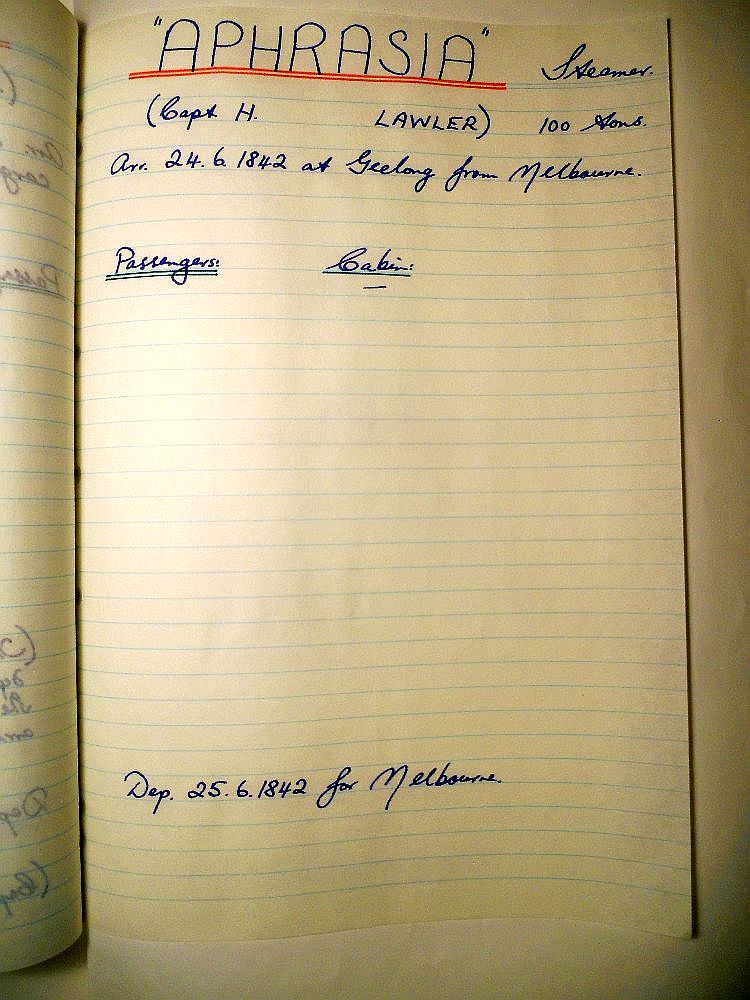 "APHRASIA" Steamer.
(Capt. H. LAWLER) 100 tons.
Arr. 24.6.1842 at Geelong from Melbourne.
Passengers: Cabin:
—
Dep. 25.6.1842 for Melbourne.